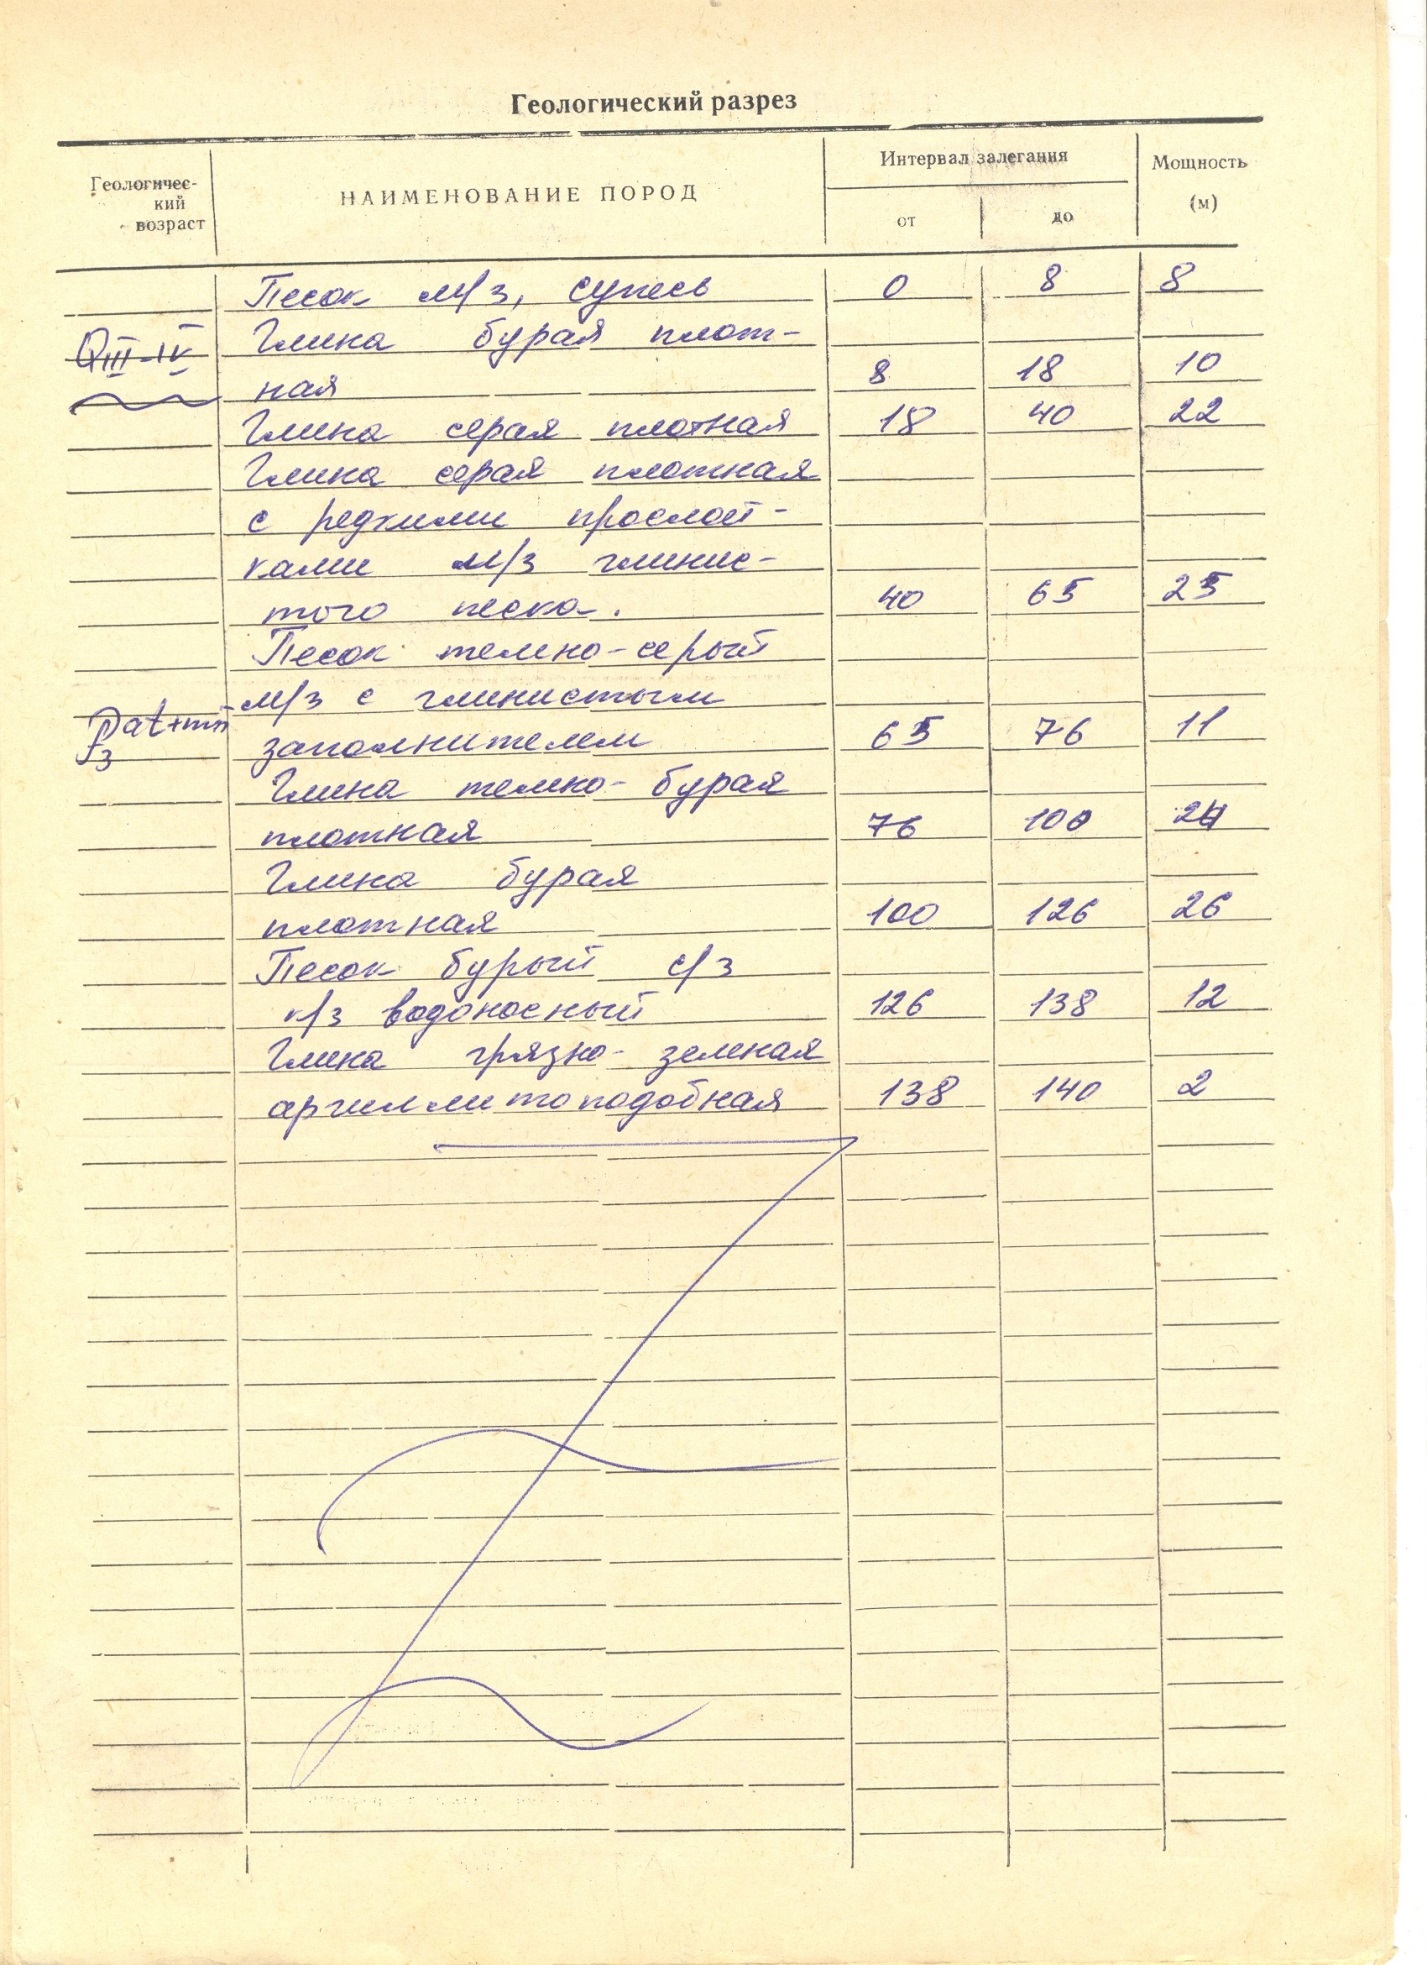 Геологический разрез
Геологичес-
кий
возраст
НАИМЕНОВАНИЕ ПОРОД
Интервал залегания
от
до
Мощность
(м)
Песок м/з, супесь 0 8 8
QIII-IV Глина бурая плот-
ная 8 18 10
Глина серая плотная 18 40 22
Глина серая плотная
с редкими прослой-
ками м/з глинис-
того песка. 40 65 25
Песок темно-серый
м/з с глинистым
P3at+mn заполнителем 65 76 11
Глина темно-бурая
плотная 76 100 24
Глина бурая
плотная 100 126 26
Песок бурый с/з
к/з водоносный 126 138 12
Глина грязно-зеленая
аргиллитоподобная 138 140 2